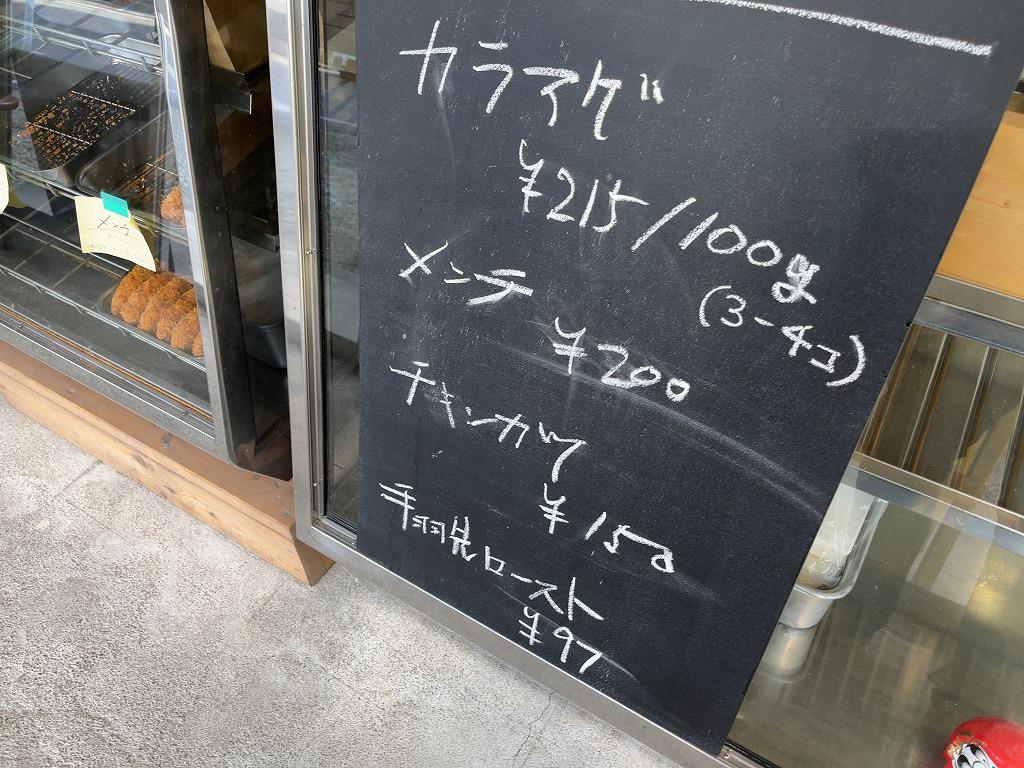 カラアゲ
¥215/100g
(3-4コ)
メンチ
¥200
チキンカツ
¥150
手羽先ロースト
¥97